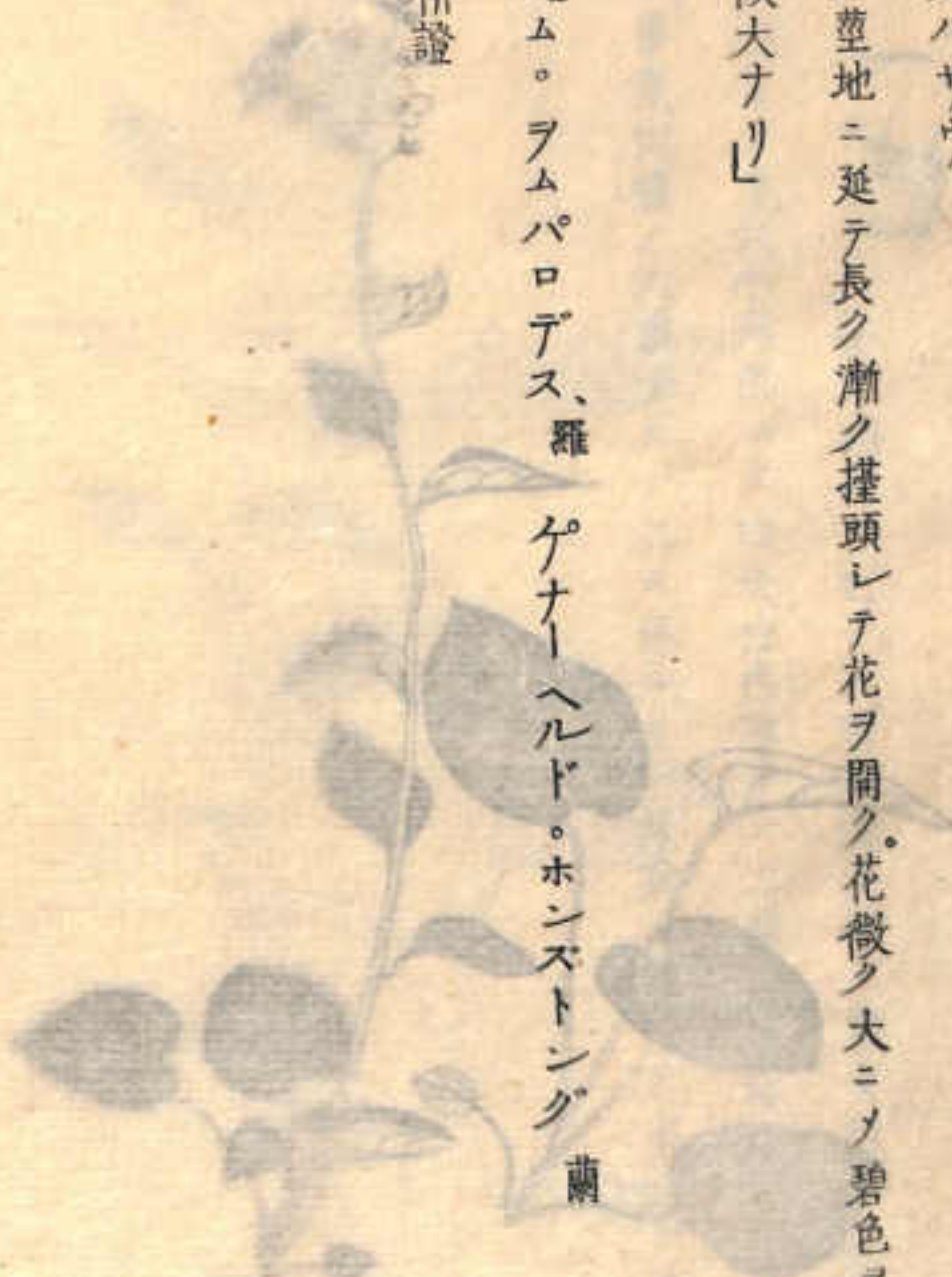 莖地ニ延テ長ク漸ク擡頭シテ花ヲ開ク。花微ク大ニメ碧色
大ナリ」
ム。ヲムパロデス、羅 ゲナーヘルド。ホンズトング 蘭
證